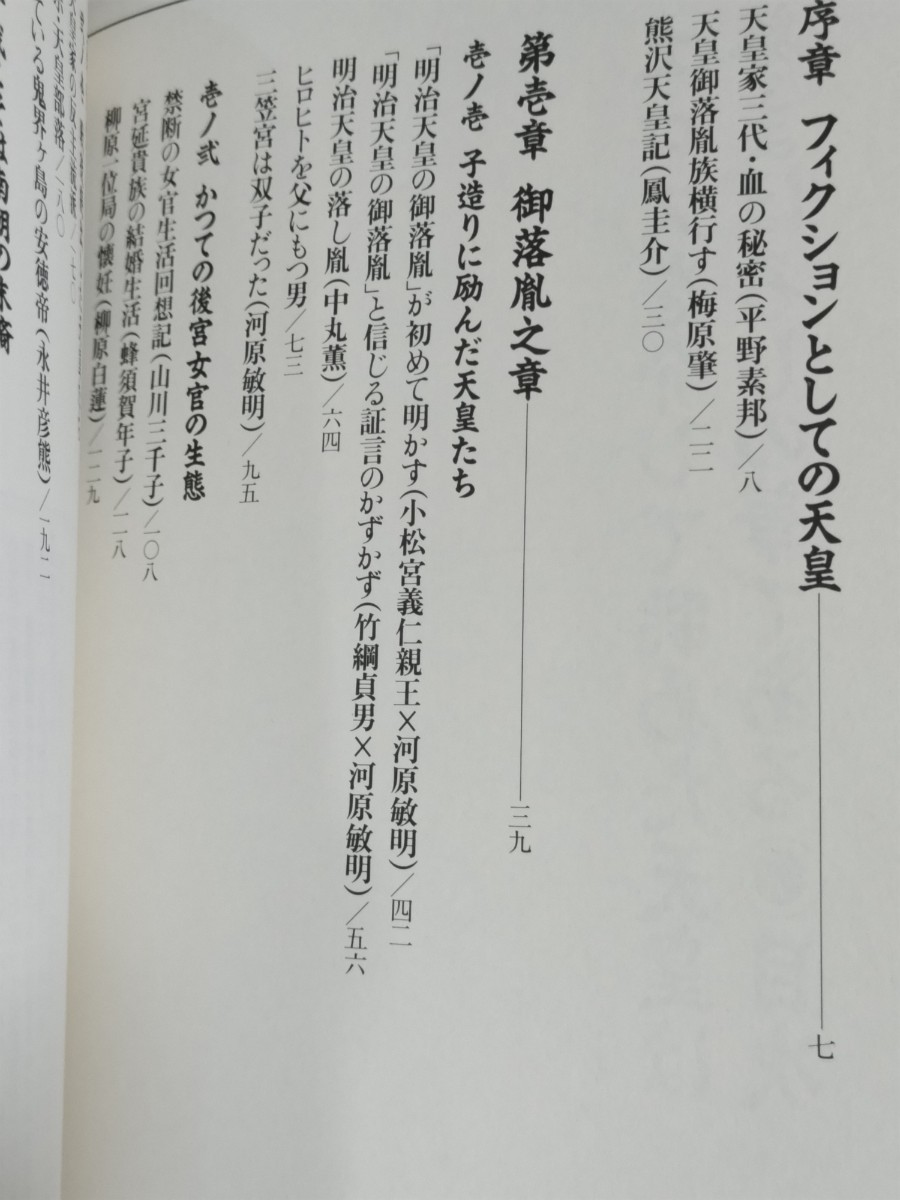 序章 フィクションとしての天皇――七
天皇家三代・血の秘密(平野素邦)/八
天皇御落胤族横行す(梅原肇)/二二
熊沢天皇記(鳳圭介)/三〇
第壱章 御落胤之章――三九
壱ノ壱 子造りに励んだ天皇たち
「明治天皇の御落胤」が初めて明かす(小松宮義仁親王×河原敏明)/四二
「明治天皇の御落胤」と信じる証言のかずかず(竹綱貞男×河原敏明)/五六
明治天皇の落し胤(中丸薫)/六四
ヒロヒトを父にもつ男/七三
三笠宮は双子だった(河原敏明)/九五
壱ノ弐 かつての後宮女官の生態
禁断の女官生活回想記(山川三千子)/一〇八
宮廷貴族の結婚生活(蜂須賀年子)/一一八
柳原一位局の懐妊(柳原白蓮)/一二九
天皇部落/一八〇
ている鬼界ヶ島の安徳帝(永井彦熊)/一九二
南朝の末裔